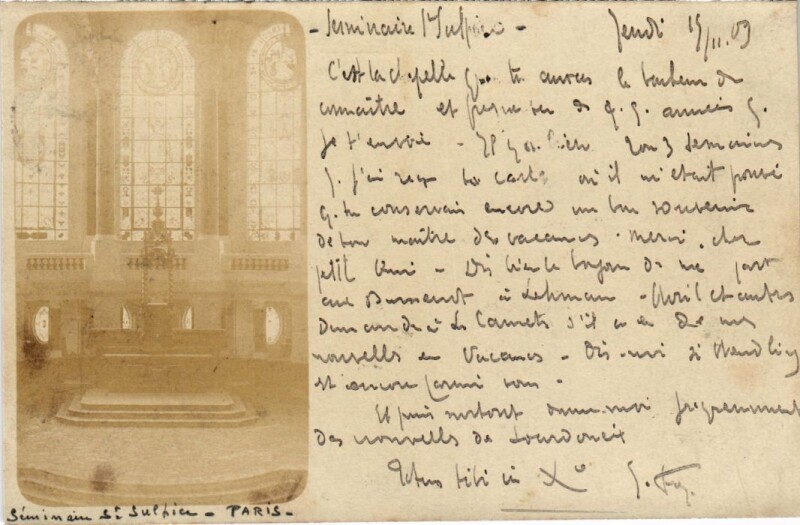 - Séminaire St Sulpice - Jeudi 19/11.03
C'est la chapelle que tu auras le bonheur de
connaître et fréquenter de q.q. années q.
je t'envoie - Il y a bien 2 ou 3 semaines
q. j'ai reçu ta carte où il m'était prouvé
q. tu conservais encore un bon souvenir
de ton maître de vacances. Merci, cher
petit - Dis bien le bonjour de ma part
aux à Lehman - et autres
Demande à s'il a eu de mes
nouvelles en vacances - Dis-moi si
est encore parmi vous -
Et puis surtout donne-moi fréquemment
des nouvelles de
Totus tibi in Xo
Séminaire St Sulpice - PARIS -